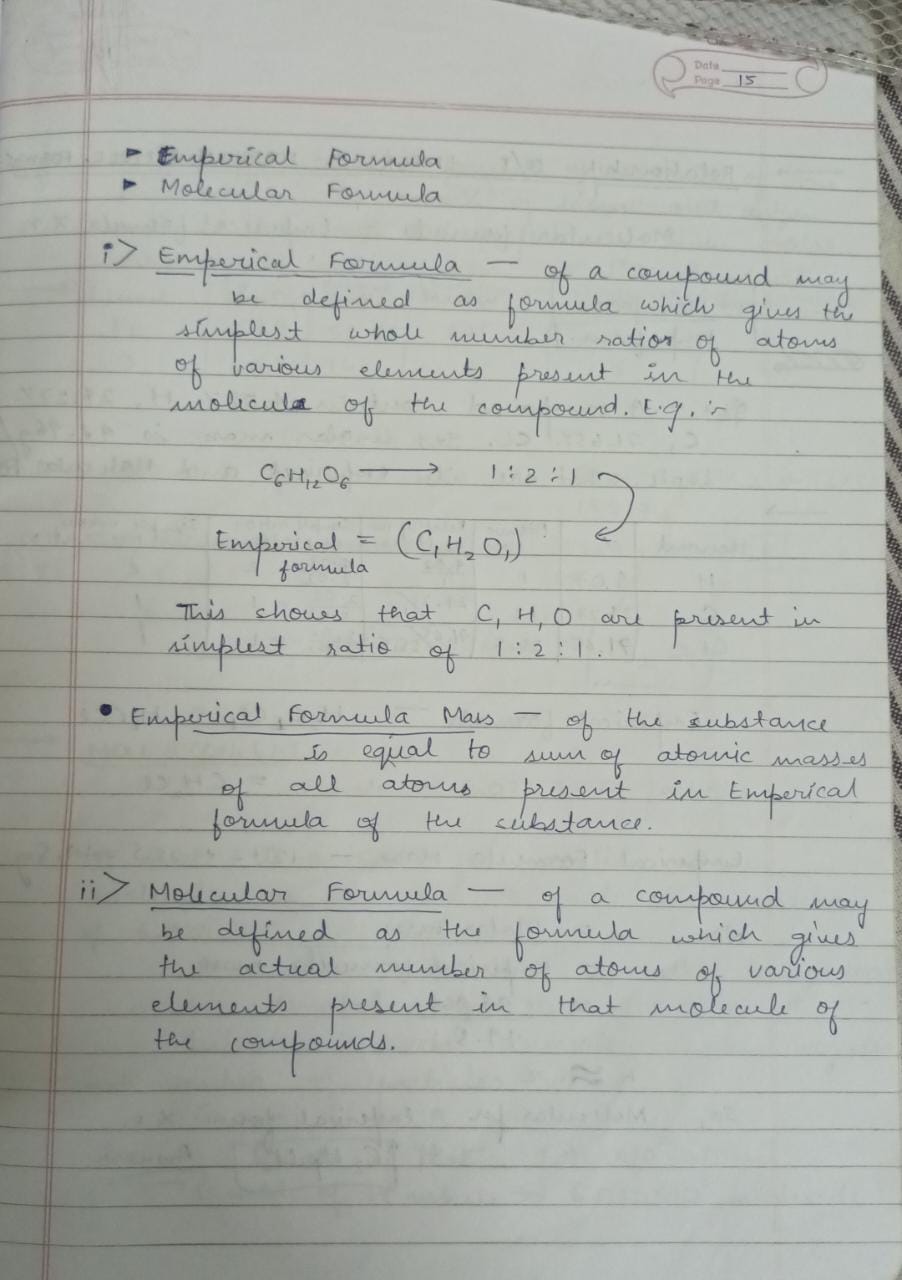 Date
Page 15
▸ Emperical Formula
▸ Molecular Formula
i> Emperical Formula — of a compound may
be defined as formula which gives the
simplest whole number ratior of atoms
of various elements present in the
molecule of the compound. E.g. :-
C₆H₁₂O₆ ⟶ 1 : 2 : 1
Emperical = (C₁H₂O₁)
formula
This shows that C, H, O are present in
simplest ratio of 1 : 2 : 1.
• Emperical Formula Mass — of the substance
is equal to sum of atomic masses
of all atoms present in Emperical
formula of the substance.
ii> Molecular Formula — of a compound may
be defined as the formula which gives
the actual number of atoms of various
elements present in that molecule of
the compounds.